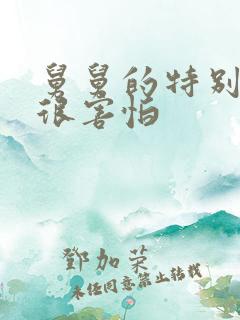 舅舅的特别
很害怕
鄧加荣
未经同意禁止转载